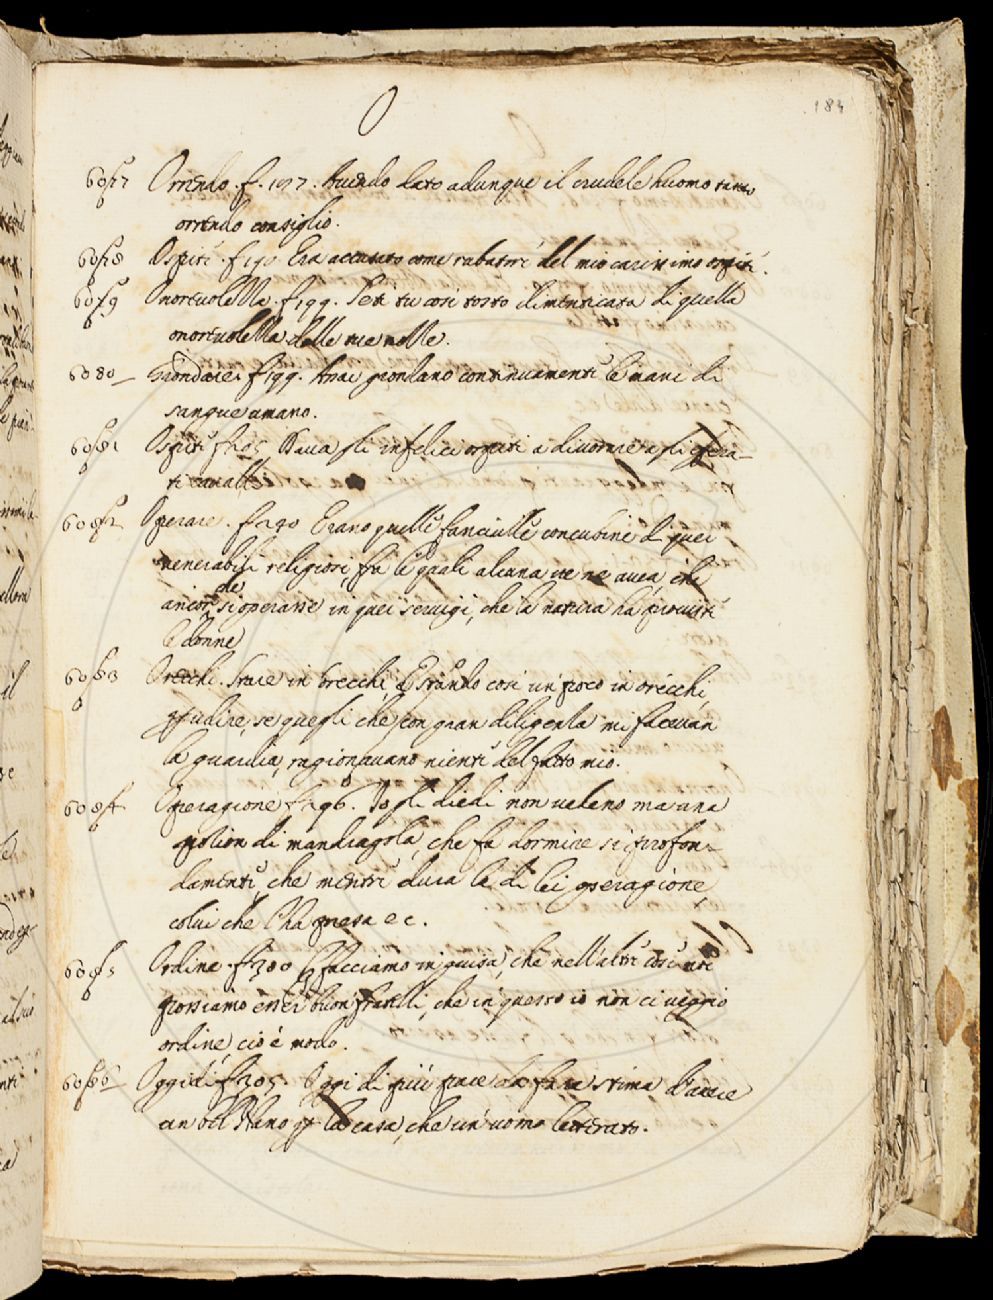 O
184
6077 Orrendo. f. 177. Avendo dato adunque il crudele huomo tanto
orrendo consiglio.
6078 Ospiti. f 190 Era accusato come rubatore del mio carissimo ospite.
6079 Onorevolella. f. 199. Seti tu cosi tosto dimenticata di quella
onorevolella delle tue nolle.
6080 Grondare. f 199. Anzi grondano continuamente le mani di
sangue umano.
6081 Ospiti f 205 Dava gli infelici ospiti a divorare a gli
ti cavalli
6082 Operare. f. 290 Erano quelle fanciulle concubine di quei
venerabili religiosi, fra le quali alcuna ve ne avea, che
de
ancor si operasse in quei servigi, che la natura ha
le donne
6083 Orecchi. Stare in orecchi, e stando cosi un poco in orecchi,
udire, se quegli che con gran diligenza mi facevan
la guardia, ragionavano niente del fatto mio.
6084 Operagione f 296. Io gli diedi non veleno ma una
potion di mandragola, che fa dormire si profon-
damente, che mentre dura la di lei operagione,
colui che l'ha presa ec.
6085 Ordine. f 300 Facciamo in guisa, che nell'altre
possiamo esser buon fratelli, che in questo io non ci veggio
ordine, cioè modo.
6086 Oggidi f 305. Oggi di più pare da fare stima d'avere
un per la casa, che un uomo letterato.